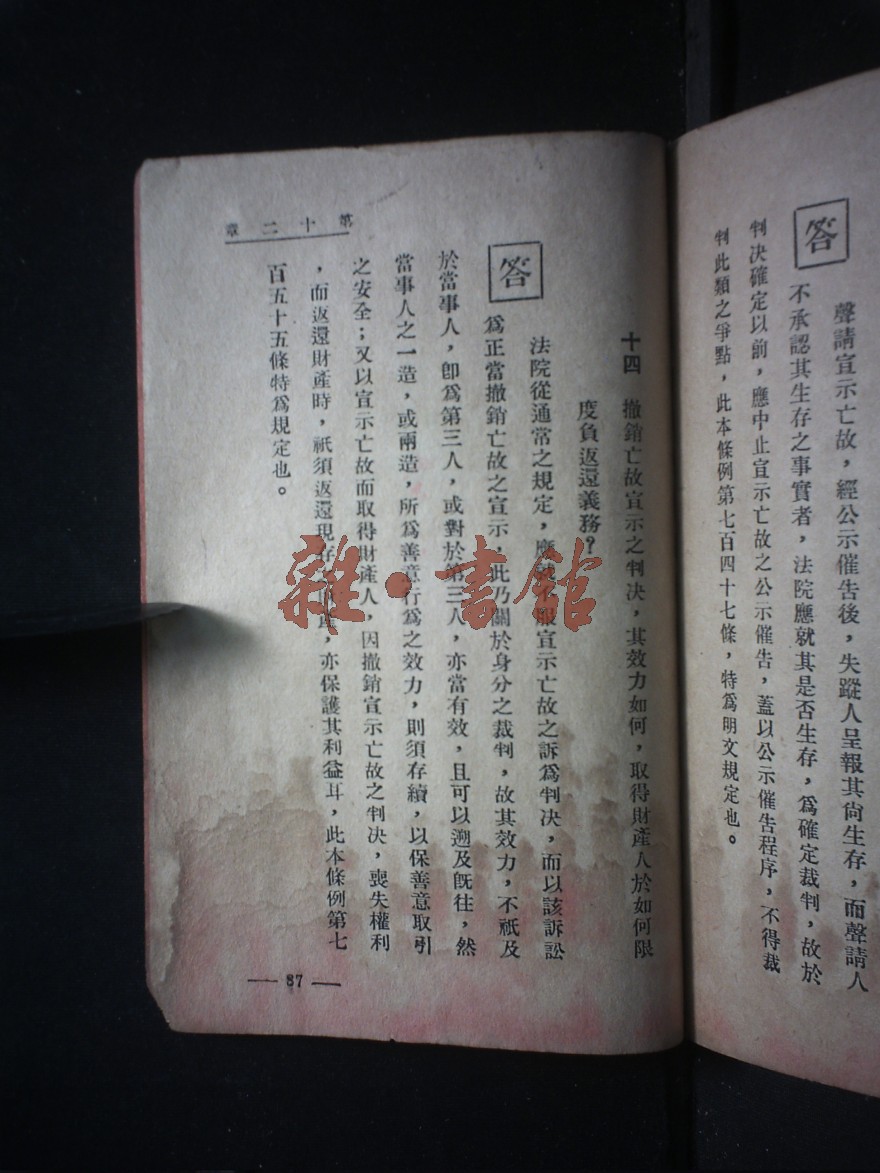 答
聲請宣示亡故，經公示催告後，失蹤人呈報其尙生存，而聲請人
不承認其生存之事實者，法院應就其是否生存，爲確定裁判，故於
判决確定以前，應中止宣示亡故之公示催告，蓋以公示催告程序，不得裁
判此類之爭點，此本條例第七百四十七條，特爲明文規定也。
十四　撤銷亡故宣示之判决，其效力如何，取得財產人於如何限
度負返還義務？
答
法院從通常之規定，應就不服宣示亡故之訴爲判决，而以該訴訟
爲正當撤銷亡故之宣示，此乃關於身分之裁判，故其效力，不祇及
於當事人，卽爲第三人，或對於第三人，亦當有效，且可以溯及旣往，然
當事人之一造，或兩造，所爲善意行爲之效力，則須存續，以保善意取引
之安全；又以宣示亡故而取得財產人，因撤銷宣示亡故之判决，喪失權利
，而返還財產時，祇須返還現存，亦保護其利益耳，此本條例第七
百五十五條特爲規定也。
第十二章
— 87 —
雜·書館